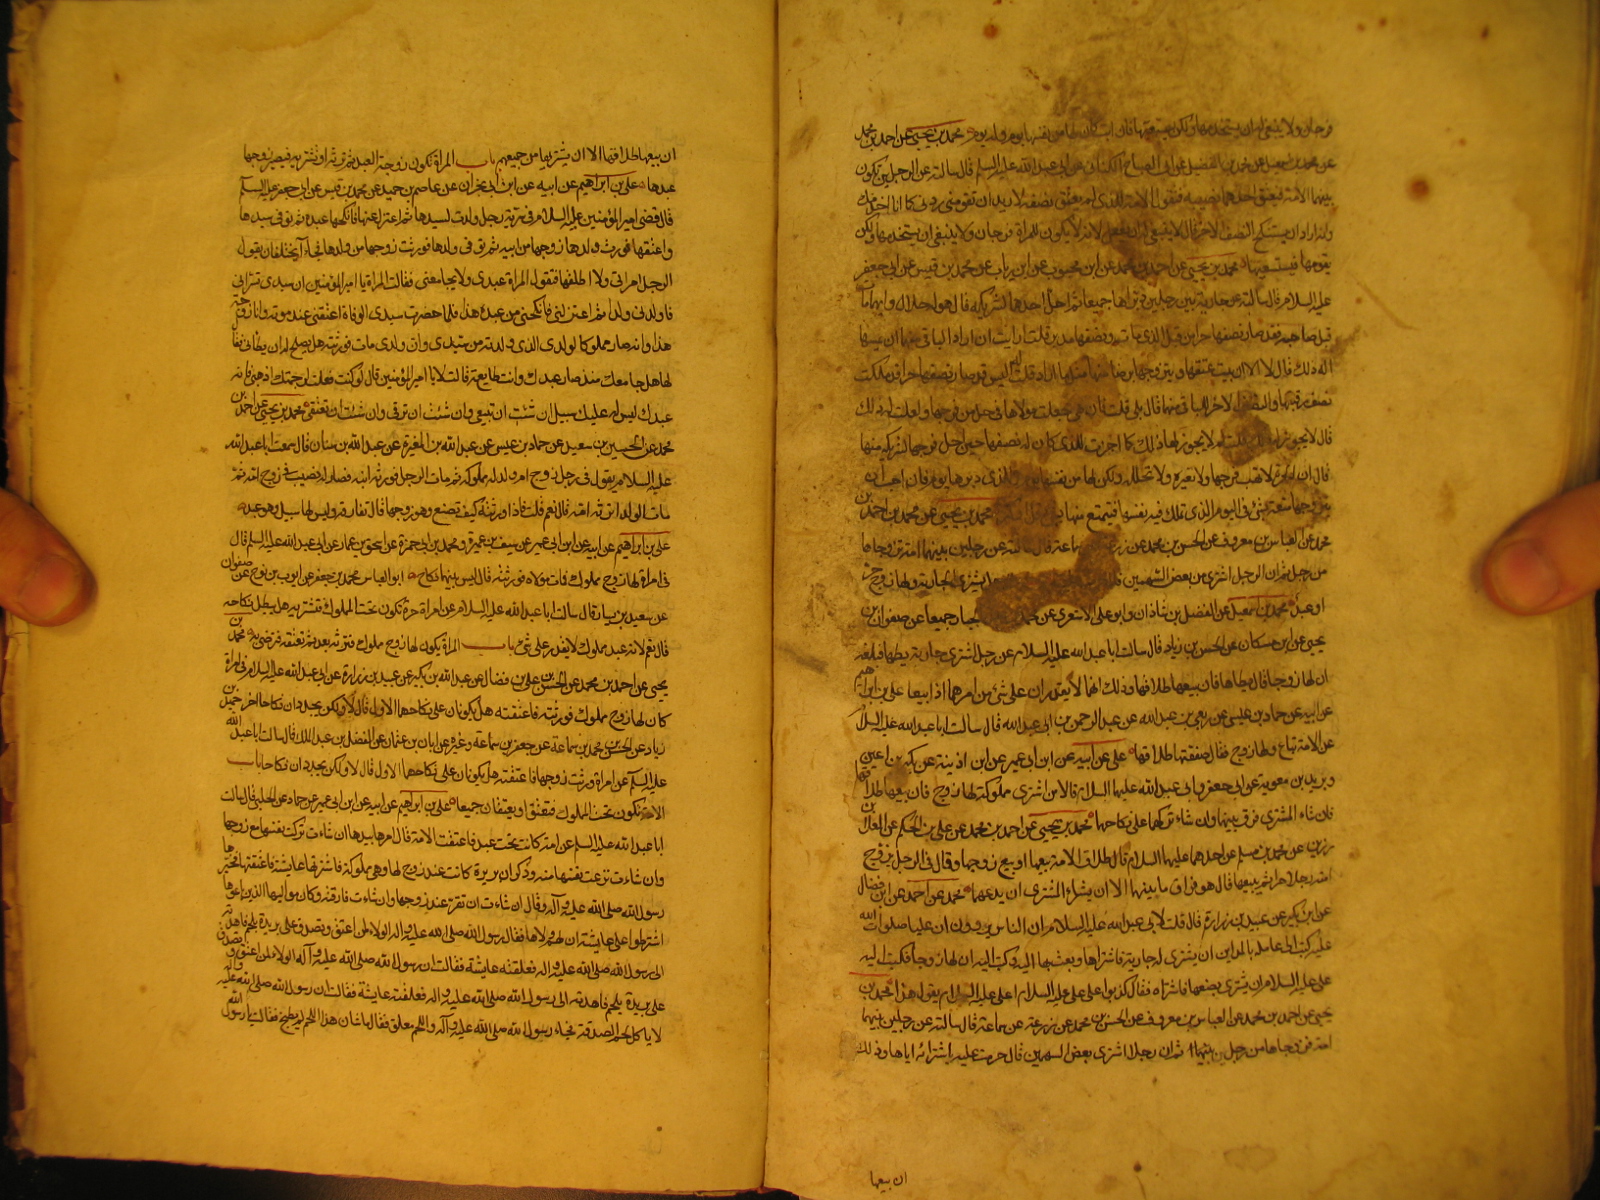 فرجان ولا ينبغي له ان يستخدمها ولكن يستسعيها فان ابت كان لها من نفسها يوم وله يوم محمد بن يحيى عن احمد بن محمد
عن محمد بن اسمعيل عن محمد بن الفضيل عن ابي الصباح الكناني عن ابي عبد الله عليه السلم قال سالته عن الرجلين تكون
بينهما الامة فيعتق احدهما نصيبه فتقول الامة للذي لم يعتق نصفه لا اريد ان تقومني ردني كما انا اخدمك
وانه اراد ان يستنكح النصف الاخر قال لا ينبغي له ان يفعل لانه لا يكون للمراة فرجان ولا ينبغي ان يستخدمها ولكن
يقومها فيستسعيها محمد بن يحيى عن احمد بن محمد عن ابن محبوب عن ابن رياب عن محمد بن قيس عن ابي جعفر
عليه السلام قال سالته عن جارية بين رجلين دبراها جميعا ثم احل احدهما لشريكه قال هو له حلال وايهما مات
قبل صاحبه فقد صار نصفها حرا من قبل الذي مات ونصفها مدبر قلت ارايت ان اراد الباقي منهما ان يمسها
اله ذلك قال لا الا ان يبت عتقها ويتزوجها برضا منها مثل ما اراد قلت اليس قد صار نصفها حرا قد ملكت
نصف رقبتها والنصف الاخر للباقي منهما قال بلى قلت فان هي جعلت مولاها في حل من فرجها واحلت له ذلك
قال لا يجوز له ذلك قلت لم لا يجوز لها ذلك كما اجزت للذي كان له نصفها حين احل فرجها لشريكه منها
قال ان الحرة لا تهب فرجها ولا تعيره ولا تحلله ولكن لها من نفسها يوم وللذي دبرها يوم فان احب ان
يتزوجها متعة بشئ في اليوم الذي تملك فيه نفسها فيتمتع منها بشئ قل او كثر محمد بن يحيى عن محمد بن احمد بن
محمد عن العباس بن معروف عن الحسن بن محمد عن زرعة عن سماعة قال سالته عن رجلين بينهما امة زوجاها
من رجل ثم ان الرجل اشترى من بعض السهمين يشتري الجارية ولها زوج حر
او عبد محمد بن اسمعيل عن الفضل بن شاذان وابو علي الاشعري عن محمد بن عبد الجبار جميعا عن صفوان بن
يحيى عن ابن مسكان عن الحسن بن زياد قال سالت ابا عبد الله عليه السلام عن رجل اشترى جارية يطاها فبلغه
ان لها زوجا قال يطاها فان بيعها طلاقها وذلك انهما لا يقدران على شئ من امرهما اذا بيعا علي بن ابراهيم
عن ابيه عن حماد بن عيسى عن ربعي بن عبد الله عن عبد الرحمن بن ابي عبد الله قال سالت ابا عبد الله عليه السلام
عن الامة تباع ولها زوج فقال صفقتها طلاقها علي عن ابيه عن ابن ابي عمير عن ابن اذينة عن بكير بن اعين
وبريد بن معوية عن ابي جعفر وابي عبد الله عليهما السلام قالا من اشترى مملوكة لها زوج فان بيعها طلاقها
فان شاء المشتري فرق بينهما وان شاء تركهما على نكاحهما محمد بن يحيى عن احمد بن محمد عن علي بن الحكم عن العلا بن
رزين عن محمد بن مسلم عن احدهما عليهما السلام قال طلاق الامة بيعها او بيع زوجها وقال في الرجل يزوج
امته رجلا حرا ثم يبيعها قال هو فراق ما بينهما الا ان يشاء المشتري ان يدعهما محمد عن احمد عن ابن فضال
عن ابن بكير عن عبيد بن زرارة قال قلت لابي عبد الله عليه السلام ان الناس يروون ان عليا صلوات الله
عليه كتب الى عامله بالمداين ان يشتري له جارية فاشتراها وبعث بها اليه وكتب اليه ان لها زوجا فكتب اليه
علي عليه السلام ان يشتري بضعها فاشتراه فقال كذبوا على علي عليه السلام اعلي عليه السلام يقول هذا محمد بن
يحيى عن احمد بن محمد عن العباس بن معروف عن الحسن بن محمد عن زرعة عن سماعة قال سالته عن رجلين بينهما
امة فزوجاها من رجل ثم ان رجلا اشترى بعض السهمين قال حرمت عليه باشترائه اياها وذلك
ان بيعها
ان بيعها طلاقها الا ان يشتريها من جميعهم باب المراة تكون زوجة العبد ثم ترثه او تشتريه فيصير زوجها
عبدها علي بن ابراهيم عن ابيه عن ابن ابي نجران عن عاصم بن حميد عن محمد بن قيس عن ابي جعفر عليه السلم
قال قضى امير المؤمنين عليه السلام في سرية رجل ولدت لسيدها ثم اعتزل عنها فانكحها عبده ثم توفي سيدها
واعتقها فورث ولدها زوجها من ابيه ثم توفي ولدها فورثت زوجها من ولدها فجاءا يختلفان يقول
الرجل امراتي ولا اطلقها فتقول المراة عبدي ولا يجامعني فقالت المراة يا امير المؤمنين ان سيدي تسراني
فاولدني ولدا ثم اعتزلني فانكحني من عبده هذا فلما حضرت سيدي الوفاة اعتقني عند موته وانا زوجة
هذا وانه صار مملوكا لولدي الذي ولدته من سيدي وان ولدي مات فورثته هل يصلح له ان يطاني فقال
لها هل جامعك منذ صار عبدك وانت طايعة قالت لا يا امير المؤمنين قال لو كنت فعلت لرجمتك اذهبي فانه
عبدك ليس له عليك سبيل ان شئت ان تبيعي وان شئت ان ترقي وان شئت ان تعتقي محمد بن يحيى عن احمد بن
محمد عن الحسين بن سعيد عن حماد بن عيسى عن عبد الله بن المغيرة عن عبد الله بن سنان قال سمعت ابا عبد الله
عليه السلام يقول في رجل زوج ام ولد له مملوكه ثم مات الرجل فورثه ابنه فصار له نصيب في زوج امه ثم
مات الولد اترثه امه قال نعم قلت فاذا ورثته كيف تصنع وهو زوجها قال تفارقه وليس له عليها سبيل وهو عبده
علي بن ابراهيم عن ابيه عن ابن ابي عمير عن سيف بن عميرة ومحمد بن ابي حمزة عن اسحق بن عمار عن ابي عبد الله عليه السلم قال
في امراة لها زوج مملوك فمات مولاه فورثته قال ليس بينهما نكاح ابو العباس محمد بن جعفر عن ايوب بن نوح عن صفوان
عن سعيد بن يسار قال سالت ابا عبد الله عليه السلام عن امراة حرة تكون تحت المملوك فتشتريه هل يبطل نكاحه
قال نعم لانه عبد مملوك لا يقدر على شئ باب المراة يكون لها زوج مملوك فترثه بعد ثم تعتقه فترضى به محمد بن
يحيى عن احمد بن محمد عن الحسن بن علي بن فضال عن عبد الله بن بكير عن عبيد بن زرارة عن ابي عبد الله عليه السلام في امراة
كان لها زوج مملوك فورثته فاعتقته هل يكونان على نكاحهما الاول قال لا ولكن يجددان نكاحا اخر حميد بن
زياد عن الحسن بن محمد بن سماعة عن جعفر بن سماعة وغيره عن ابان بن عثمان عن الفضل بن عبد الملك قال سالت ابا عبد الله
عليه السلم عن امراة ورثت زوجها فاعتقته هل يكونان على نكاحهما الاول قال لا ولكن يجددان نكاحا باب
الامة تكون تحت المملوك فتعتق او يعتقان جميعا علي بن ابراهيم عن ابيه عن ابن ابي عمير عن حماد عن الحلبي قال سالت
ابا عبد الله عليه السلم عن امة كانت تحت عبد فاعتقت الامة قال امرها بيدها ان شاءت تركت نفسها مع زوجها
وان شاءت نزعت نفسها منه وذكر ان بريرة كانت عند زوج لها وهي مملوكة فاشترتها عايشة فاعتقتها فخيرها
رسول الله صلى الله عليه وآله وقال ان شاءت ان تقر عند زوجها وان شاءت فارقته وكان مواليها الذين باعوها
اشترطوا على عايشة ان لهم ولاءها فقال رسول الله صلى الله عليه واله الولاء لمن اعتق وتصدق على بريرة بلحم فاهدته
الى رسول الله صلى الله عليه واله فعلقته عايشة وقالت ان رسول الله صلى الله عليه وآله الولاء لمن اعتق وتصدق
على بريرة بلحم فاهدته الى رسول الله صلى الله عليه واله فعلقته عايشة وقالت ان رسول الله صلى الله عليه واله
لا ياكل لحم الصدقة فجاء رسول الله صلى الله عليه وآله واللحم معلق فقال ما شان هذا اللحم لم يطبخ فقالت يا رسول الله